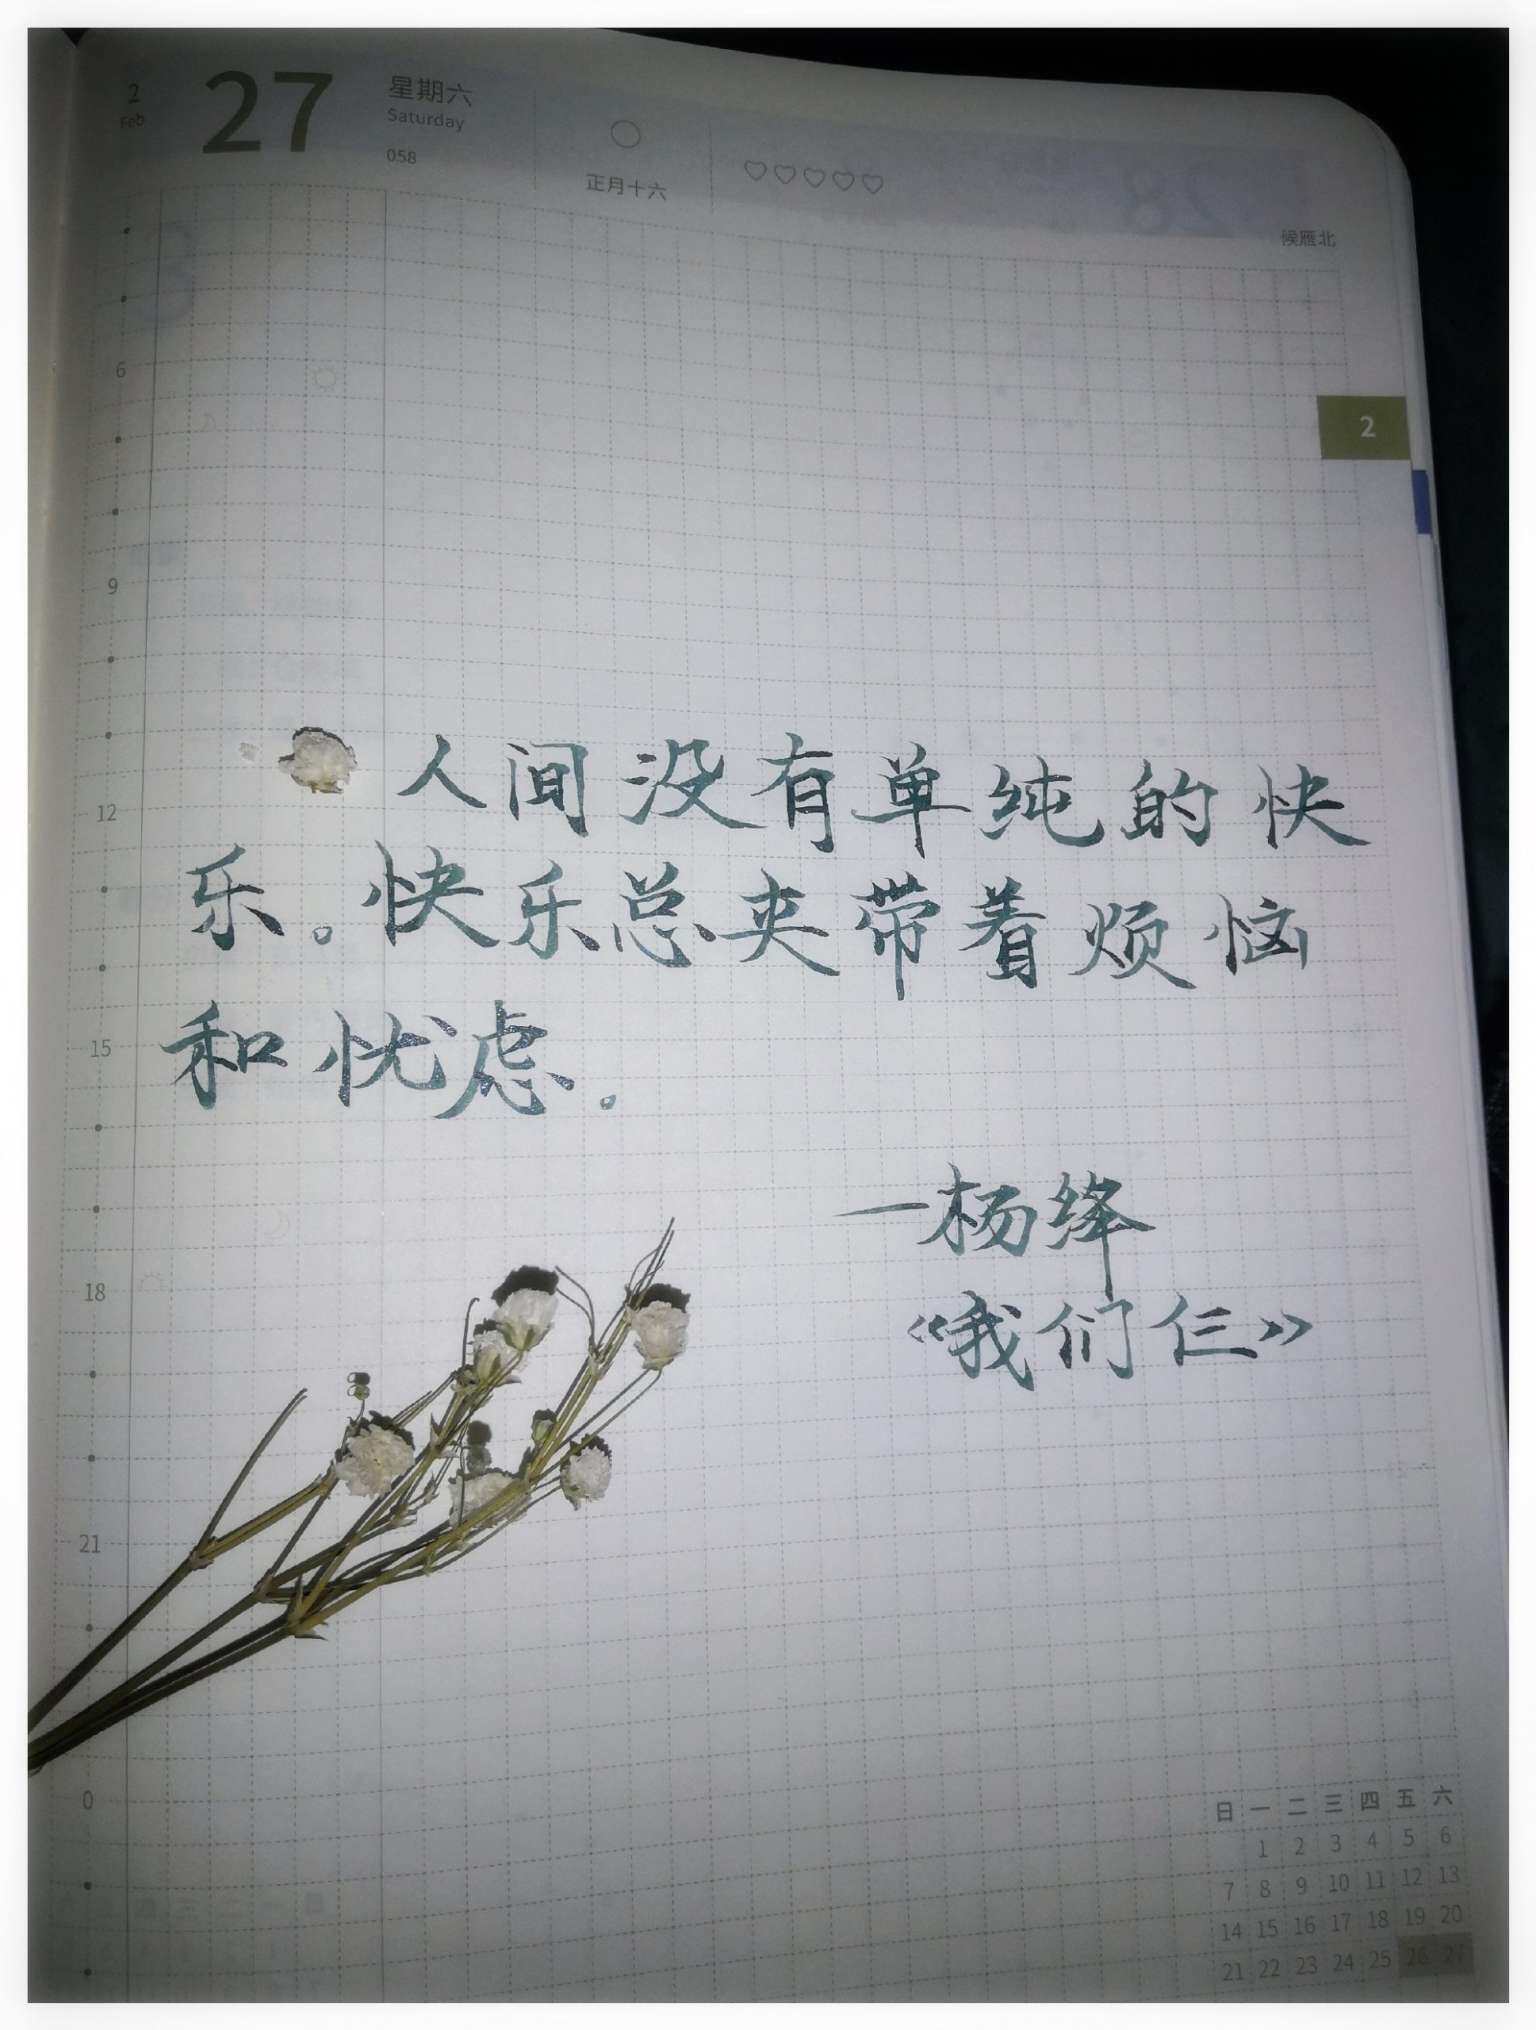 2
Feb
27
星期六
Saturday
058
正月十六
♡♡♡♡♡
候雁北
2
6
9
12
15
18
21
0
人间没有单纯的快
乐。快乐总夹带着烦恼
和忧虑。
—杨绛
《我们仨》
日 一 二 三 四 五 六
1 2 3 4 5 6
7 8 9 10 11 12 13
14 15 16 17 18 19 20
21 22 23 24 25 26 27